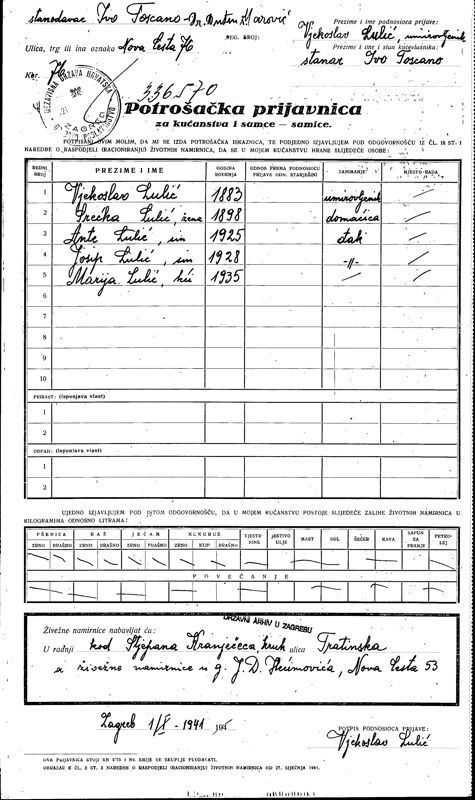 stanodavac Ivo Toscano - Dr. Antun Marović
Ulica, trg ili ina oznaka Nova Cesta 76
REG. BROJ:
Kbr. 76
Prezime i ime podnosioca prijave:
Vjekoslav Lulić, umirovljenik
Prezime i ime i stan kućevlasnika:
stanar Ivo Toscano
NEZAVISNA DRŽAVA HRVATSKA
ZAGREB
336570
Potrošačka prijavnica
za kućanstva i samce — samice.
POTPISANI OVIM MOLIM, DA MI SE IZDA POTROŠAČKA ISKAZNICA, TE PODJEDNO IZJAVLJUJEM POD ODGOVORNOŠĆU IZ ČL. 18 ST. 1
NAREDBE O RASPODJELI (RACIONIRANJU) ŽIVOTNIH NAMIRNICA, DA SE U MOJEM KUĆANSTVU HRANE SLIJEDEĆE OSOBE:
REDNI BROJ PREZIME I IME GODINA ROĐENJA ODNOS PREMA PODNOSIOCU PRIJAVE ODN. STARJEŠINI ZANIMANJE MJESTO RADA
1 Vjekoslav Lulić 1883 umirovljenik
2 Srećka Lulić, žena 1898 domaćica
3 Ante Lulić, sin 1925 đak
4 Josip Lulić, sin 1928 -//-
5 Marija Lulić, kći 1935
6
7
8
9
10
PRIRAST: (ispunjava vlast)
1
2
OTPAD: (ispunjava vlast)
1
2
UJEDNO IZJAVLJUJEM POD ISTOM ODGOVORNOŠĆU, DA U MOJEM KUĆANSTVU POSTOJE SLIJEDEĆE ZALIHE ŽIVOTNIH NAMIRNICA U
KILOGRAMIMA ODNOSNO LITRAMA:
PŠENICA RAŽ JEČAM KUKURUZ TJESTENINE JESTIVO ULJE MAST SOL ŠEĆER KAVA SAPUN ZA PRANJE PETROLEJ
ZRNO BRAŠNO ZRNO BRAŠNO ZRNO BRAŠNO ZRNO KLIP BRAŠNO
POVEĆANJE
DRŽAVNI ARHIV U ZAGREBU
Živežne namirnice nabavljat ću:
U radnji kod Stjepana Kranjčeca, kruh ulica Tratinska
a živežne namirnice u g. J.D. Nova Cesta 53
Zagreb 1/X - 1941
POTPIS PODNOSIOCA PRIJAVE:
Vjekoslav Lulić
OVA PRIJAVNICA STOJI KN 0.75 I NE SMIJE SE SKUPLJE PRODAVATI.
OBRAZAC K ČL. 2 ST. 3 NAREDBE O RASPODJELI (RACIONIRANJU) ŽIVOTNIH NAMIRNICA OD 27. SIJEČNJA 1941.